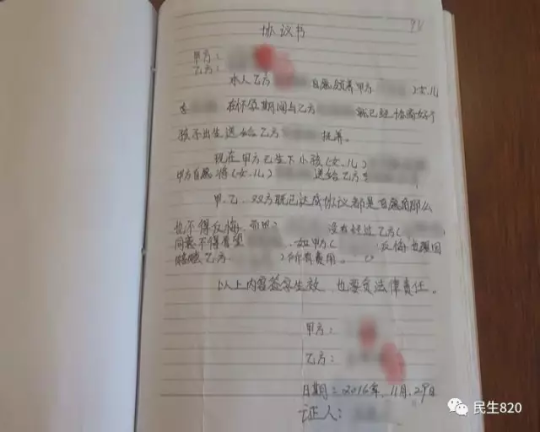 协议书
甲方:
乙方:
本人乙方 自愿领养甲方 女儿
在怀孕期间与乙方 就已经协商好了
孩子出生送给乙方 抚养。
现在甲方已生下小孩(女儿)
甲方自愿将(女儿) 送给乙方
甲、乙、双方既已达成协议都是自愿的那么
也不得反悔, 没有经过乙方(
同意不得看望 如甲方( 反悔
赔赔乙方( )所有费用。
以上内容签字生效,也要负法律责任。
甲方:
乙方:
日期:2016年.11月.29日
证人:
民生820